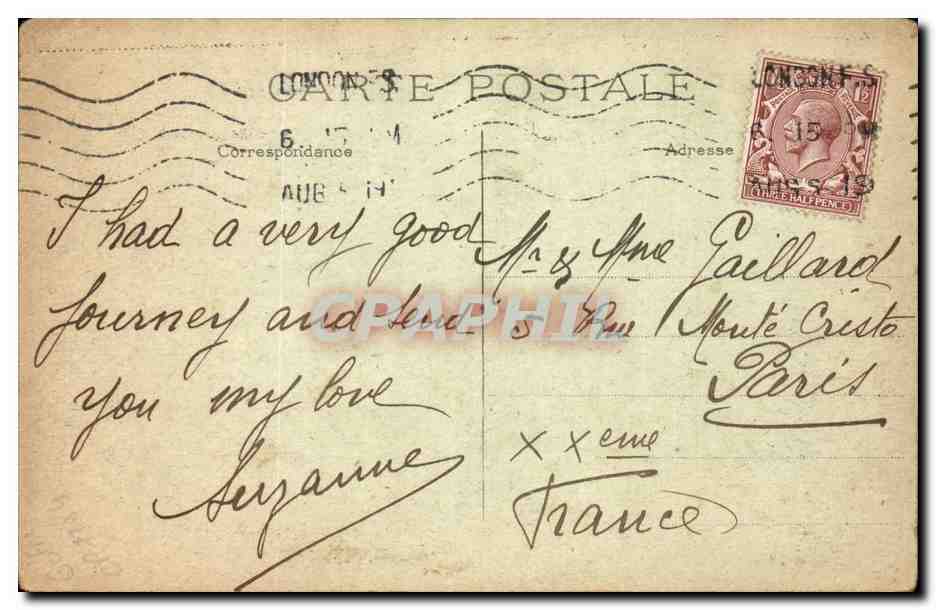 CARTE POSTALE
LONDON F.S
6 15 PM
AUG 5 19
Correspondance
Adresse
LONDON F.S
6 15 PM
AUG 5 19
1½
THREE HALFPENCE
I had a very good
journey and send
you my love
Suzanne
Mr & Mme Gaillard
5 Rue Monté Cristo
Paris
XXeme
France
CPAPHIL